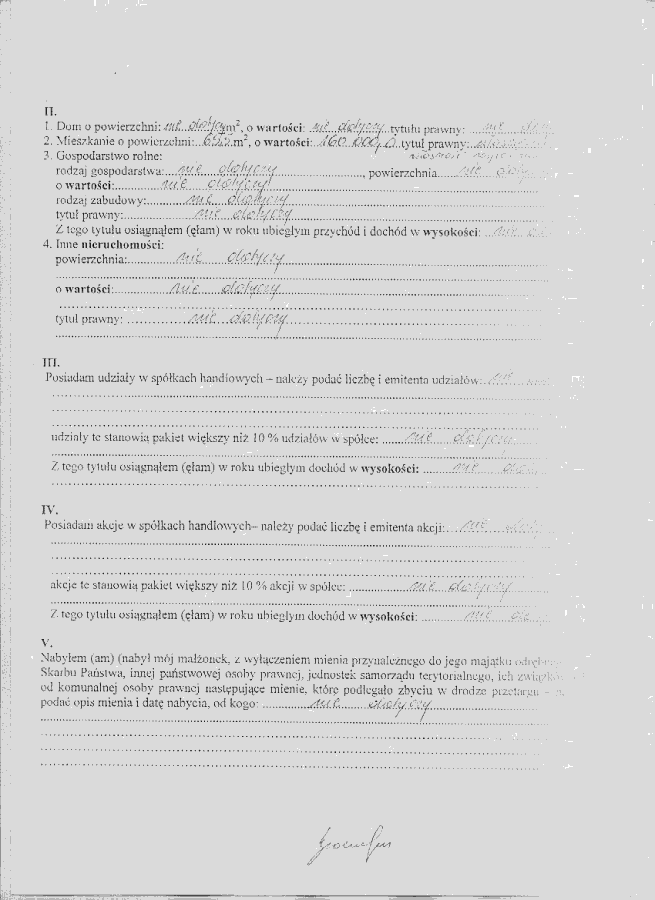 II.
1. Dom o powierzchni: nie dotyczy m², o wartości: nie dotyczy tytułu prawny: nie
2. Mieszkanie o powierzchni: m², o wartości: 160 000,0 tytuł prawny:
3. Gospodarstwo rolne:
rodzaj gospodarstwa: nie dotyczy, powierzchnia nie dotyczy
o wartości: nie dotyczy
rodzaj zabudowy: nie dotyczy
tytuł prawny: nie dotyczy
Z tego tytułu osiągnąłem (ęłam) w roku ubiegłym przychód i dochód w wysokości: nie
4. Inne nieruchomości:
powierzchnia: nie dotyczy
o wartości: nie dotyczy
tytuł prawny: nie dotyczy
III.
Posiadam udziały w spółkach handlowych – należy podać liczbę i emitenta udziałów: nie
udziały te stanowią pakiet większy niż 10 % udziałów w spółce: nie dotyczy
Z tego tytułu osiągnąłem (ęłam) w roku ubiegłym dochód w wysokości: nie
IV.
Posiadam akcje w spółkach handlowych– należy podać liczbę i emitenta akcji: nie
akcje te stanowią pakiet większy niż 10 % akcji w spółce: nie dotyczy
Z tego tytułu osiągnąłem (ęłam) w roku ubiegłym dochód w wysokości: nie
V.
Nabyłem (am) (nabył mój małżonek, z wyłączeniem mienia przynależnego do jego majątku
Skarbu Państwa, innej państwowej osoby prawnej, jednostek samorządu terytorialnego, ich
od komunalnej osoby prawnej następujące mienie, które podlegało zbyciu w drodze przetargu –
podać opis mienia i datę nabycia, od kogo: nie dotyczy